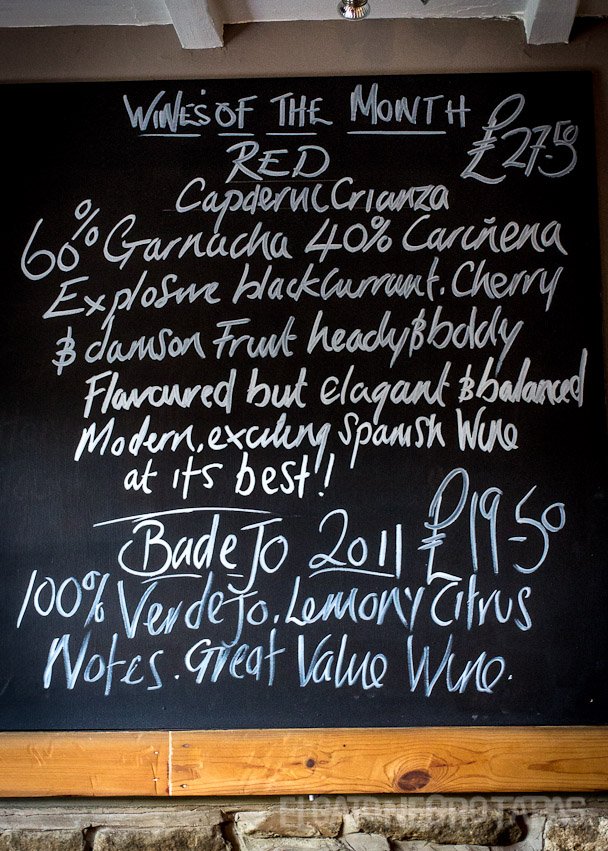 WINES OF THE MONTH
RED £27.50
Capderuc Crianza
60% Garnacha 40% Cariñena
Explosive blackcurrant. Cherry
& damson Fruit heady & boddy
Flavoured but elagant & balanced
Modern, exciting Spanish Wine
at its best!
BadeJo 2011 £19-50
100% VerdeJo. Lemony Citrus
Notes. Great Value Wine.